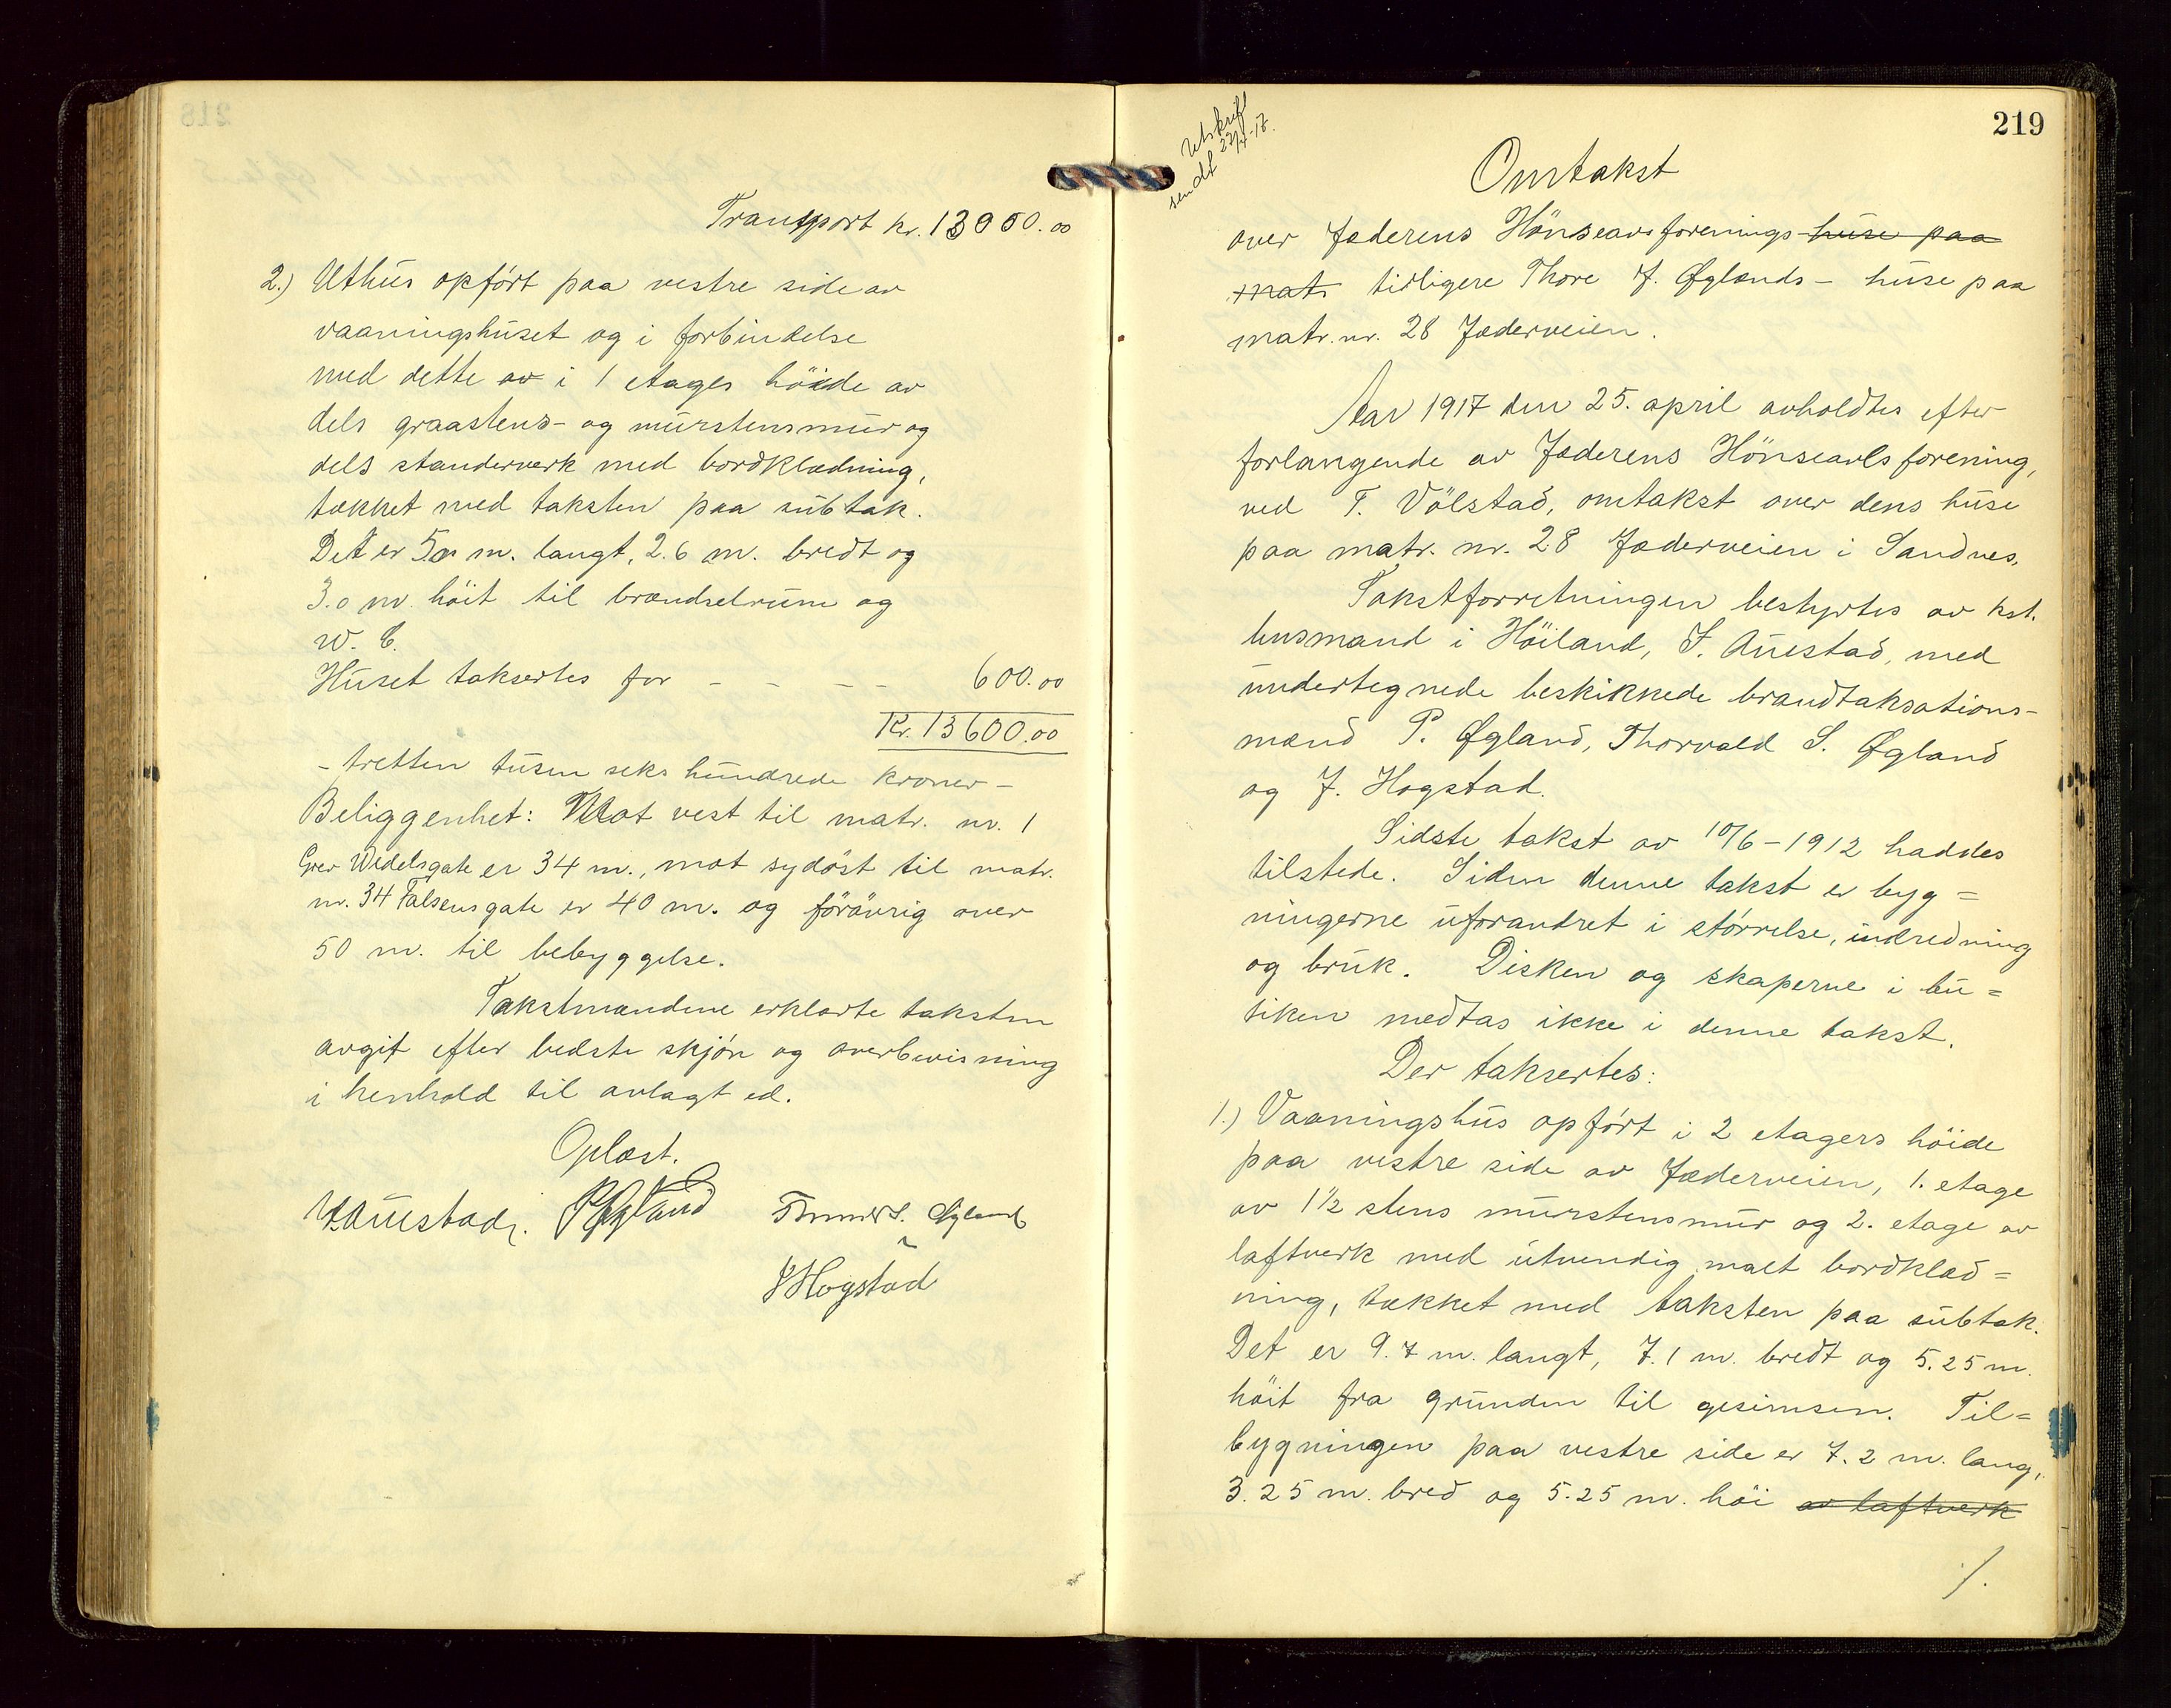 Transport kr. 13000.00
2.) Uthus opført paa vestre side av
vaaningshuset og i forbindelse
med dette av i 1 etages höide av
dels graastens- og murstensmur og
dels standerverk med bordklædning,
tækket med taksten paa subtak.
Det er 5.0 m. langt, 2.6 m. bredt og
3.0 m. höit til brændselrum og
W. C.
Huset taksertes for - - - - 600.00
Kr. 13600.00
- tretten tusen seks hundrede kroner -
Beliggenhet: Mot vest til matr. nr. 1
Grev Wedelsgate er 34 m., mot sydöst til matr.
nr. 34 Falsensgate er 40 m. og förövrig over
50 m. til bebyggelse.
Takstmændene erklærte taksten
avgit efter bedste skjön og overbevisning
i henhold til avlagt ed.
Oplæst.
Auestad. P Øgland S. Øgland
J Hogstad
219
Utskrift
sendt 27/4-17.
Omtakst
over Jæderens Hönseavsforenings huse paa
matr tidligere Thore J. Øglands - huse paa
matr. nr. 28 Jæderveien.
Aar 1917 den 25. april avholdtes efter
forlangende av Jæderens Hönseavlsforening,
ved T. Völstad, omtakst over dens huse
paa matr. nr. 28 Jæderveien i Sandnes.
Takstforretningen bestyrtes av kst.
lensmand i Höiland, S. Auestad, med
undertegnede beskikkede brandtaksations-
mænd P. Øgland, Thorvald S. Øgland
og J. Hogstad.
Sidste takst av 10/6-1912 haddes
tilstede. Siden denne takst er byg=
ningerne uforandret i størrelse, indredning
og bruk. Disken og skaperne i bu=
tiken medtas ikke i denne takst.
Der taksertes:
1.) Vaaningshus opført i 2 etagers höide
paa vestre side av Jæderveien, 1. etage
av 1½ stens murstensmur og 2. etage av
laftverk med utvendig malt bordklæd=
ning, tækket med taksten paa subtak.
Det er 9.7 m. langt, 7.1 m. bredt og 5.25 m.
höit fra grunden til gesimsen. Til=
bygningen paa vestre side er 7.2 m. lang,
3.25 m. bred og 5.25 m. höi av laftverk
./.